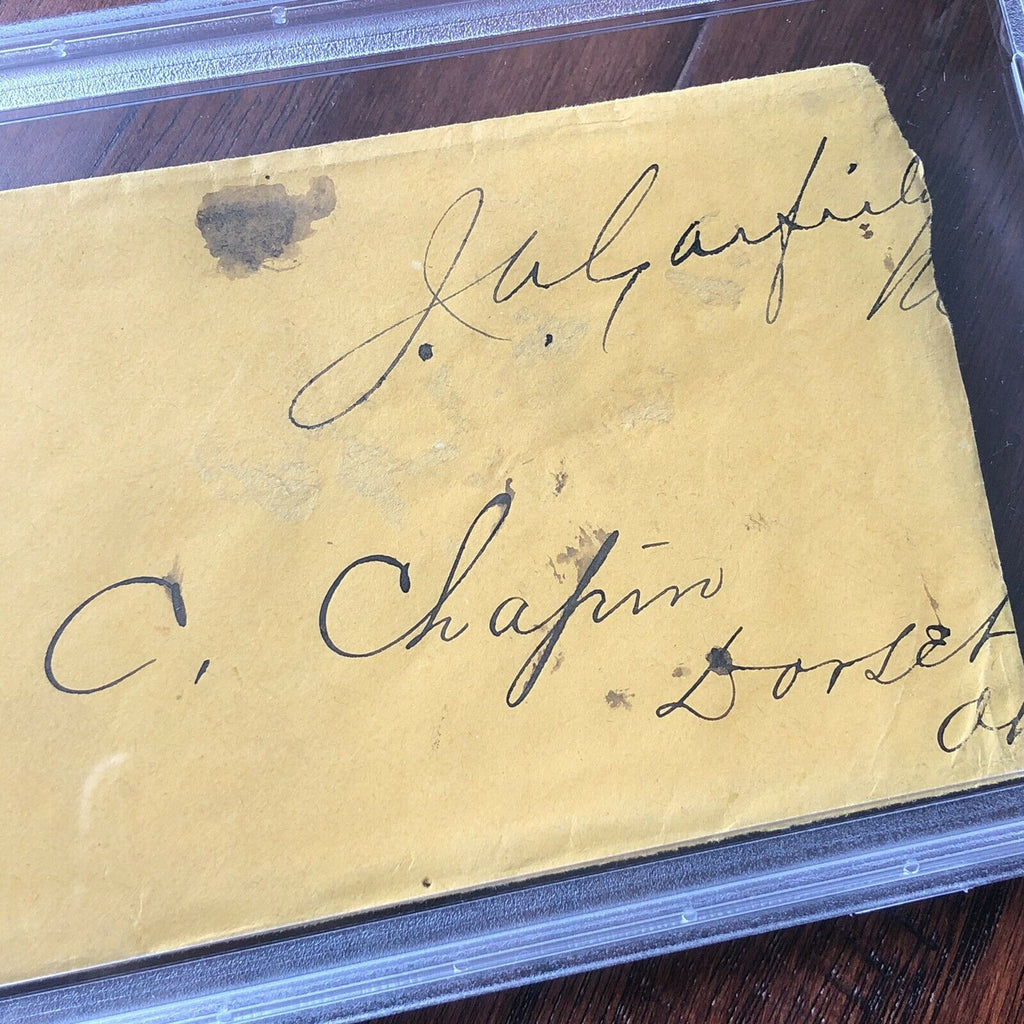 J. A. Garfield
C. Chapin
Dorset